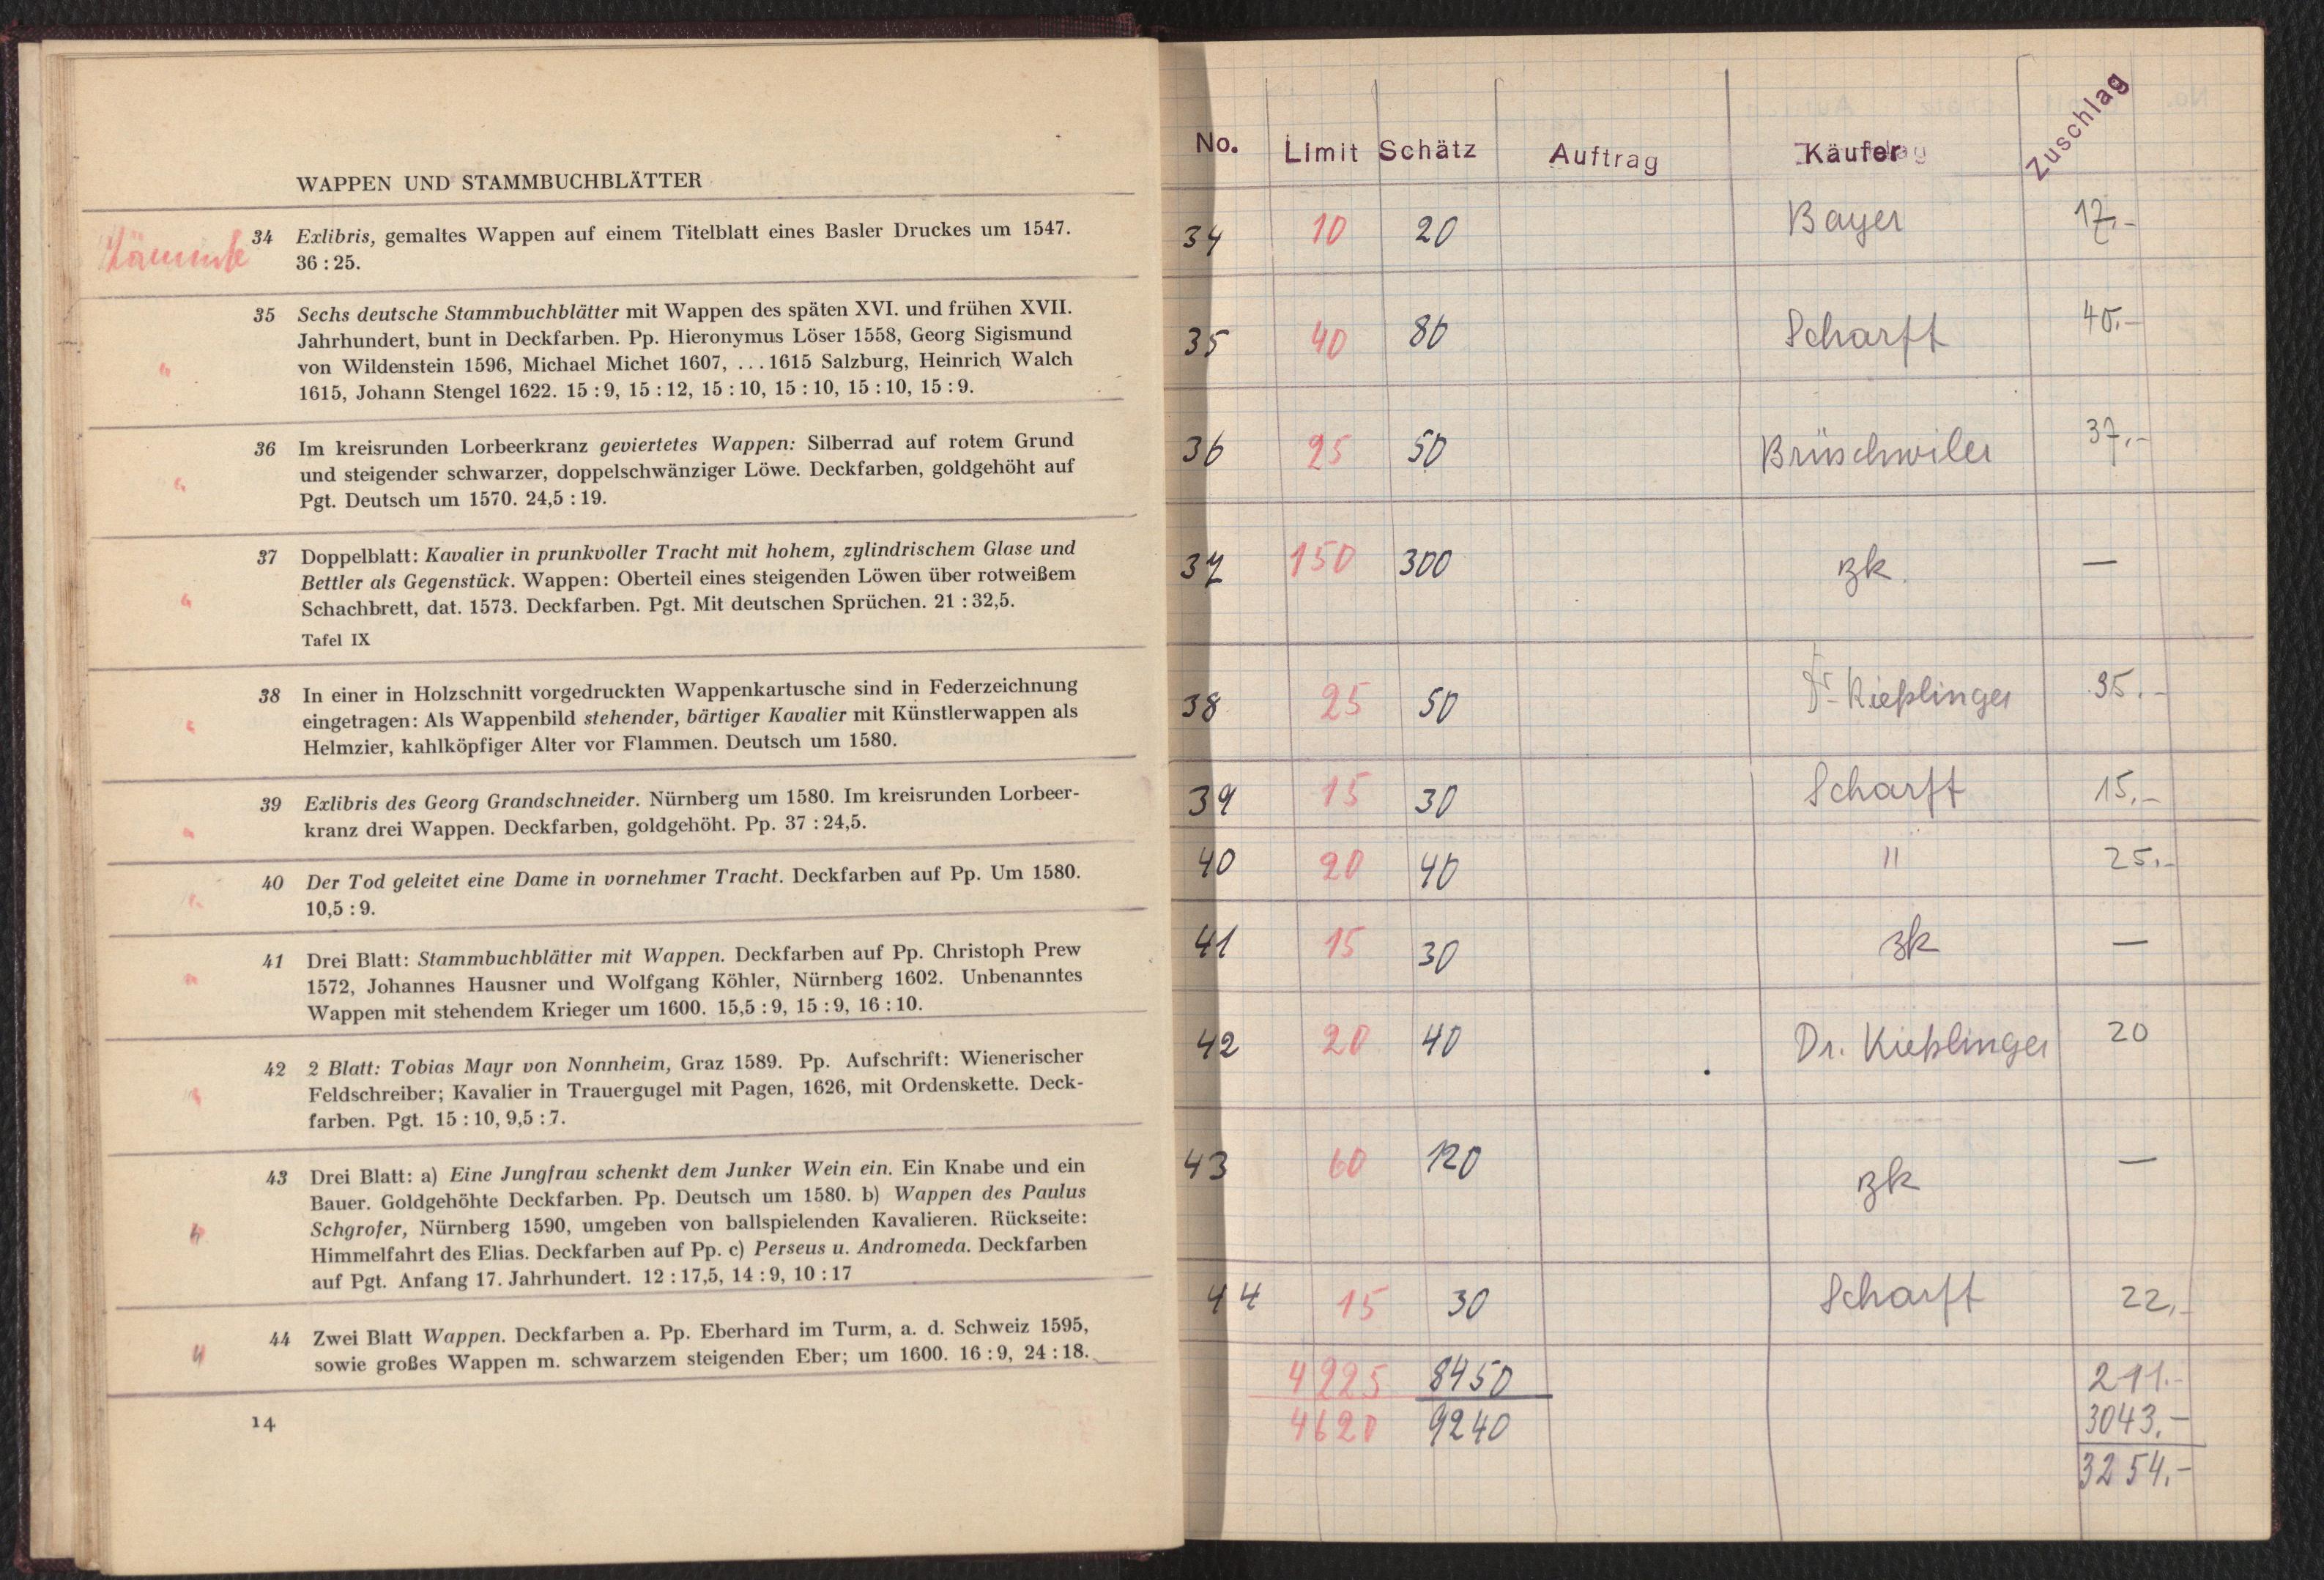 WAPPEN UND STAMMBUCHBLÄTTER
34 Exlibris, gemaltes Wappen auf einem Titelblatt eines Basler Druckes um 1547.
36 : 25.
35 Sechs deutsche Stammbuchblätter mit Wappen des späten XVI. und frühen XVII.
Jahrhundert, bunt in Deckfarben. Pp. Hieronymus Löser 1558, Georg Sigismund
von Wildenstein 1596, Michael Michet 1607, ... 1615 Salzburg, Heinrich Walch
1615, Johann Stengel 1622. 15 : 9, 15 : 12, 15 : 10, 15 : 10, 15 : 10, 15 : 9.
36 Im kreisrunden Lorbeerkranz geviertetes Wappen: Silberrad auf rotem Grund
und steigender schwarzer, doppelschwänziger Löwe. Deckfarben, goldgehöht auf
Pgt. Deutsch um 1570. 24,5 : 19.
37 Doppelblatt: Kavalier in prunkvoller Tracht mit hohem, zylindrischem Glase und
Bettler als Gegenstück. Wappen: Oberteil eines steigenden Löwen über rotweißem
Schachbrett, dat. 1573. Deckfarben. Pgt. Mit deutschen Sprüchen. 21 : 32,5.
Tafel IX
38 In einer in Holzschnitt vorgedruckten Wappenkartusche sind in Federzeichnung
eingetragen: Als Wappenbild stehender, bärtiger Kavalier mit Künstlerwappen als
Helmzier, kahlköpfiger Alter vor Flammen. Deutsch um 1580.
39 Exlibris des Georg Grandschneider. Nürnberg um 1580. Im kreisrunden Lorbeer-
kranz drei Wappen. Deckfarben, goldgehöht. Pp. 37 : 24,5.
40 Der Tod geleitet eine Dame in vornehmer Tracht. Deckfarben auf Pp. Um 1580.
10,5 : 9.
41 Drei Blatt: Stammbuchblätter mit Wappen. Deckfarben auf Pp. Christoph Prew
1572, Johannes Hausner und Wolfgang Köhler, Nürnberg 1602. Unbenanntes
Wappen mit stehendem Krieger um 1600. 15,5 : 9, 15 : 9, 16 : 10.
42 2 Blatt: Tobias Mayr von Nonnheim, Graz 1589. Pp. Aufschrift: Wienerischer
Feldschreiber; Kavalier in Trauergugel mit Pagen, 1626, mit Ordenskette. Deck-
farben. Pgt. 15 : 10, 9,5 : 7.
43 Drei Blatt: a) Eine Jungfrau schenkt dem Junker Wein ein. Ein Knabe und ein
Bauer. Goldgehöhte Deckfarben. Pp. Deutsch um 1580. b) Wappen des Paulus
Schgrofer, Nürnberg 1590, umgeben von ballspielenden Kavalieren. Rückseite:
Himmelfahrt des Elias. Deckfarben auf Pp. c) Perseus u. Andromeda. Deckfarben
auf Pgt. Anfang 17. Jahrhundert. 12 : 17,5, 14 : 9, 10 : 17
44 Zwei Blatt Wappen. Deckfarben a. Pp. Eberhard im Turm, a. d. Schweiz 1595,
sowie großes Wappen m. schwarzem steigenden Eber; um 1600. 16 : 9, 24 : 18.
14
No. Limit Schätz Auftrag Käufer Zuschlag
34 10 20 Bayer 17,-
35 40 80 Scharff 40,-
36 25 50 Brüschwiler 37,-
37 150 300 zk. —
38 25 50 Dr Kießlinger 35.-
39 15 30 Scharff 15,-
40 20 40 " 25,-
41 15 30 zk —
42 20 40 Dr. Kießlinger 20
43 60 120 zk —
44 15 30 Scharff 22,-
4225 8450 211.-
4620 9240 3043,-
3254,-